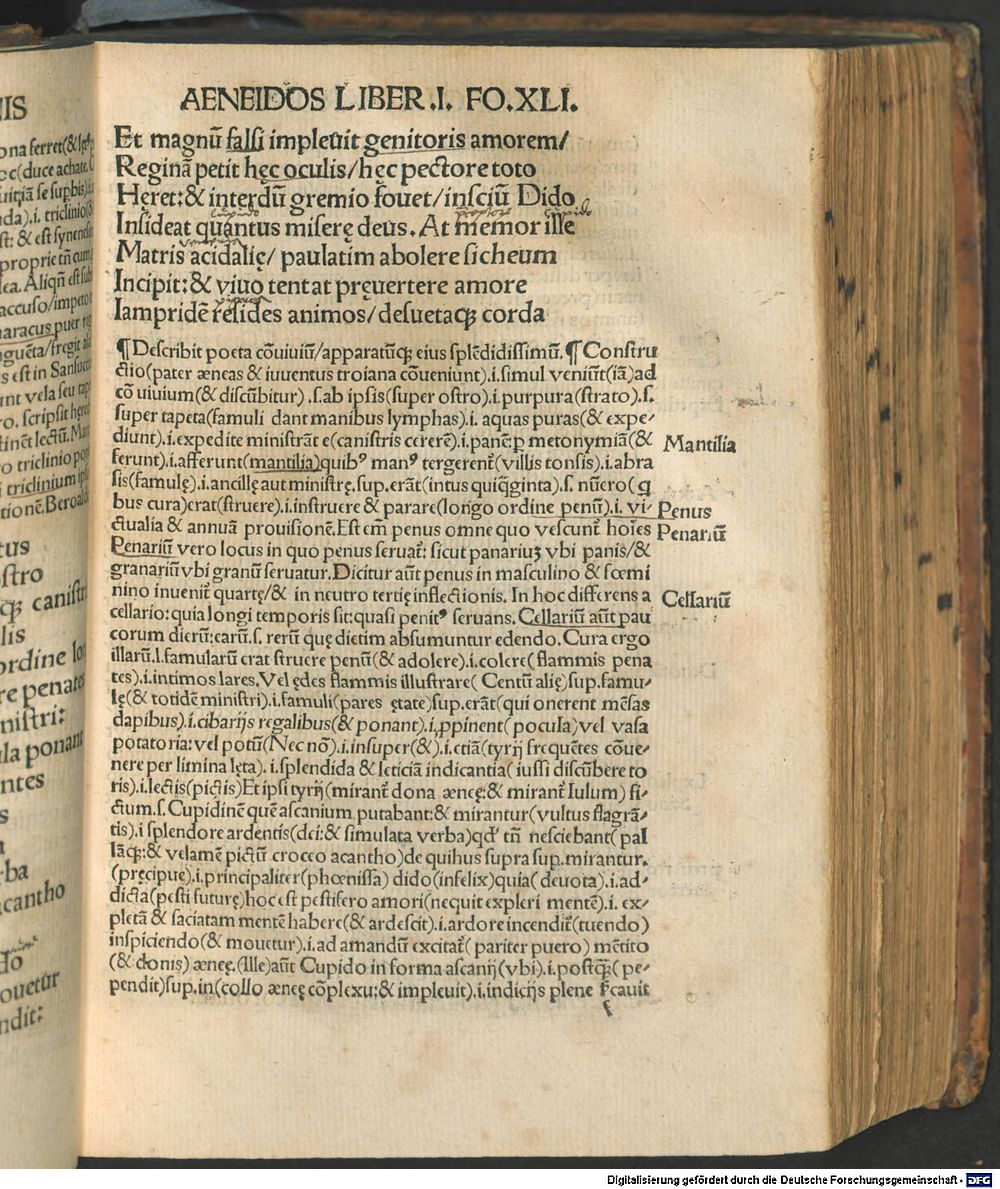 AENEIDOS LIBER .I. FO.XLI.
Et magnū falsi impleuit genitoris amorem/
Reginā petit hęc oculis/hęc pectore toto
Hęret:& interdū gremio fouet/insciū Dido
Insideat quantus miserę deus. At memor ille
Matris acidalię/ paulatim abolere sicheum
Incipit:& viuo tentat pręuertere amore
Iampridē resides animos/desuetaqꝫ corda
¶Describit poeta cōuiuiū/apparatūqꝫ eius splēdidissimū.¶Constru
ctio(pater æneas & iuuentus troiana cōueniunt).i.simul veniūt(iā)ad
cō uiuium(& discūbitur) .s.ab ipsis(super ostro).i.purpura(strato).s.
super tapeta(famuli dant manibus lymphas).i. aquas puras(& expe⸗
diunt).i.expedite ministrāt e(canistris cererē).i.panē:ꝑ metonymiā(&
ferunt).i.afferunt(mantilia)quibꝰ manꝰ tergerent̄(villis tonsis).i.abra
sis(famulę).i.ancillę aut ministrę.sup.erāt(intus quiqginta).s. nūero(q
bus cura)erat(struere).i.instruere & parare(longo ordine penū).i. vi⸗
ctualia & annuā prouisionē.Est em̄ penus omne quo vescunt̄ hoīes
Penariū vero locus in quo penus seruat̄: sicut panariuꝫ vbi panis/&
granariū vbi granū seruatur.Dicitur aūt penus in masculino & fœmi
nino inuenit̄ quartę/& in neutro tertię inflectionis. In hoc differens a
cellario: quia longi temporis sit:quasi penitꝰ seruans. Cellariū aūt pau
corum dierū:earū.s. rerū quę dietim absumuntur edendo. Cura ergo
illarū.s.famularū erat struere penū(& adolere).i.colere( flammis pena
tes).i.intimos lares. Vel ędes flammis illustrare( Centū alię)sup.famu⸗
lę(& totidē ministri).i.famuli(pares ętate)sup.erāt(qui onerent mēsas
dapibus).i.cibarijs regalibus(& ponant).i.ꝓpinent( pocula)vel vasa
potatoria: vel potū(Nec nō).i.insuper(&).i.etiā(tyrij frequētes cōue⸗
nere per limina lęta). i.splendida & leticiā indicantia( iussi discūbere to
ris).i.lectis(pictis)Et ipsi tyrij(mirant̄ dona æneę:& mirant̄ Iulum) si⸗
ctum.s. Cupidinē quē ascanium putabant:& mirantur(vultus flagrā⸗
tis).i splendore ardentis(dei:& simulata verba)qd' tn̄ nesciebant( pal
lāqꝫ:& velamē pictū croceo acantho)de quibus supra sup.mirantur.
(pręcipue).i.principaliter(phœnissa) dido(infelix)quia( deuota).i.ad⸗
dicta(pesti futurę)hoc est pestifero amori(nequit expleri mentē).i. ex⸗
pletā & saciatam mentē habere(& ardescit).i.ardore incendit̄(tuendo)
inspiciendo(& mouetur).i.ad amandū excitat̄( pariter puero) mētito
(& donis) æneę. (Ille)aūt Cupido in forma ascanij(vbi).i.postqꝫ( pe⸗
pendit)sup.in(collo æneę cōplexu:& impleuit).i.indicijs plene
f
Mantilia
Penus
Penariū
Cellariū